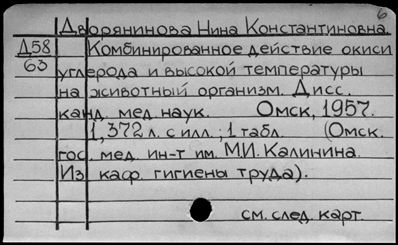 6
Дворянинова Нина Константиновна.
Д58
63
Комбинированное действие окиси
углерода и высокой температуры
на животный организм. Дисс.
канд. мед. наук. Омск, 1957.
1, 372 л. с илл.; 1 табл. (Омск.
гос. мед. ин-т им. М.И. Калинина.
Из каф. гигиены труда).
см. след. карт.